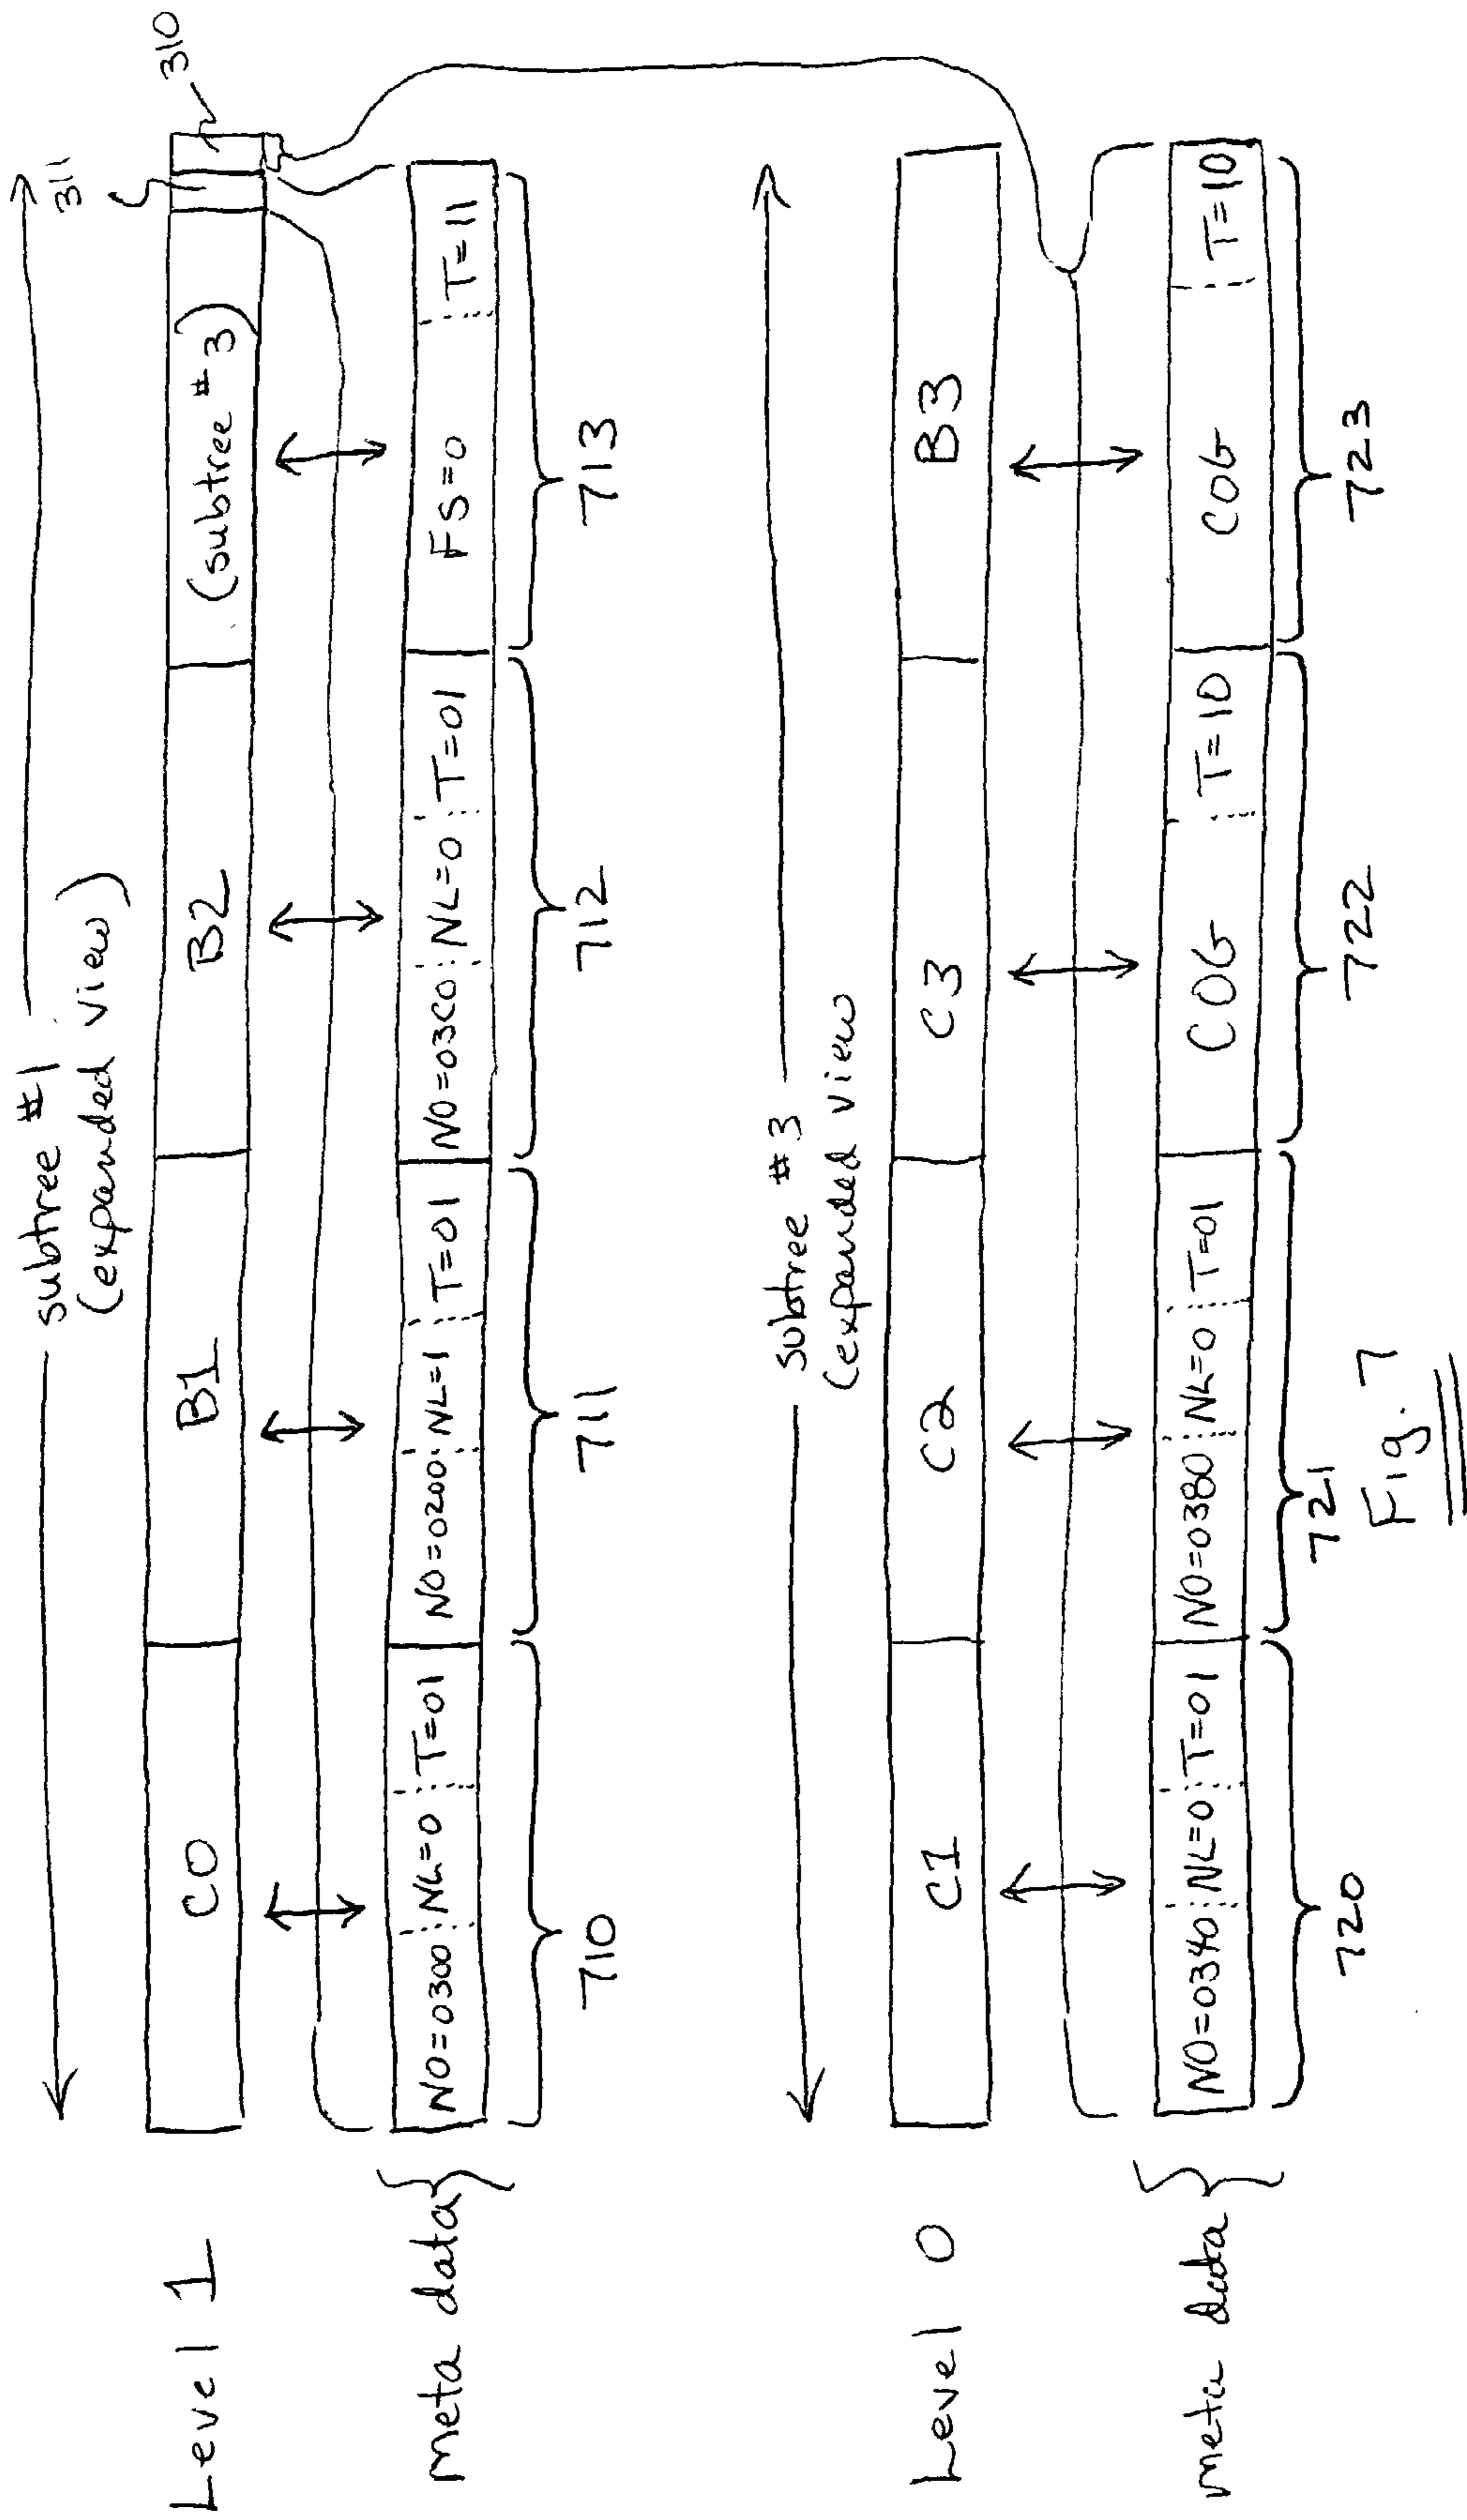 subtree #1
(expanded view)
311
310
Level 1
C0
B1
B2
(subtree #3)
meta data
NO=0300 NL=0 T=01
NO=0200 NL=1 T=01
NO=03C0 NL=0 T=01
FS=0 T=11
710
711
712
713
subtree #3
(expanded view
Level 0
C1
C2
C3
B3
meta data
NO=0340 NL=0 T=01
NO=0380 NL=0 T=01
COG T=10
COG T=10
720
721
722
723
Fig. 7